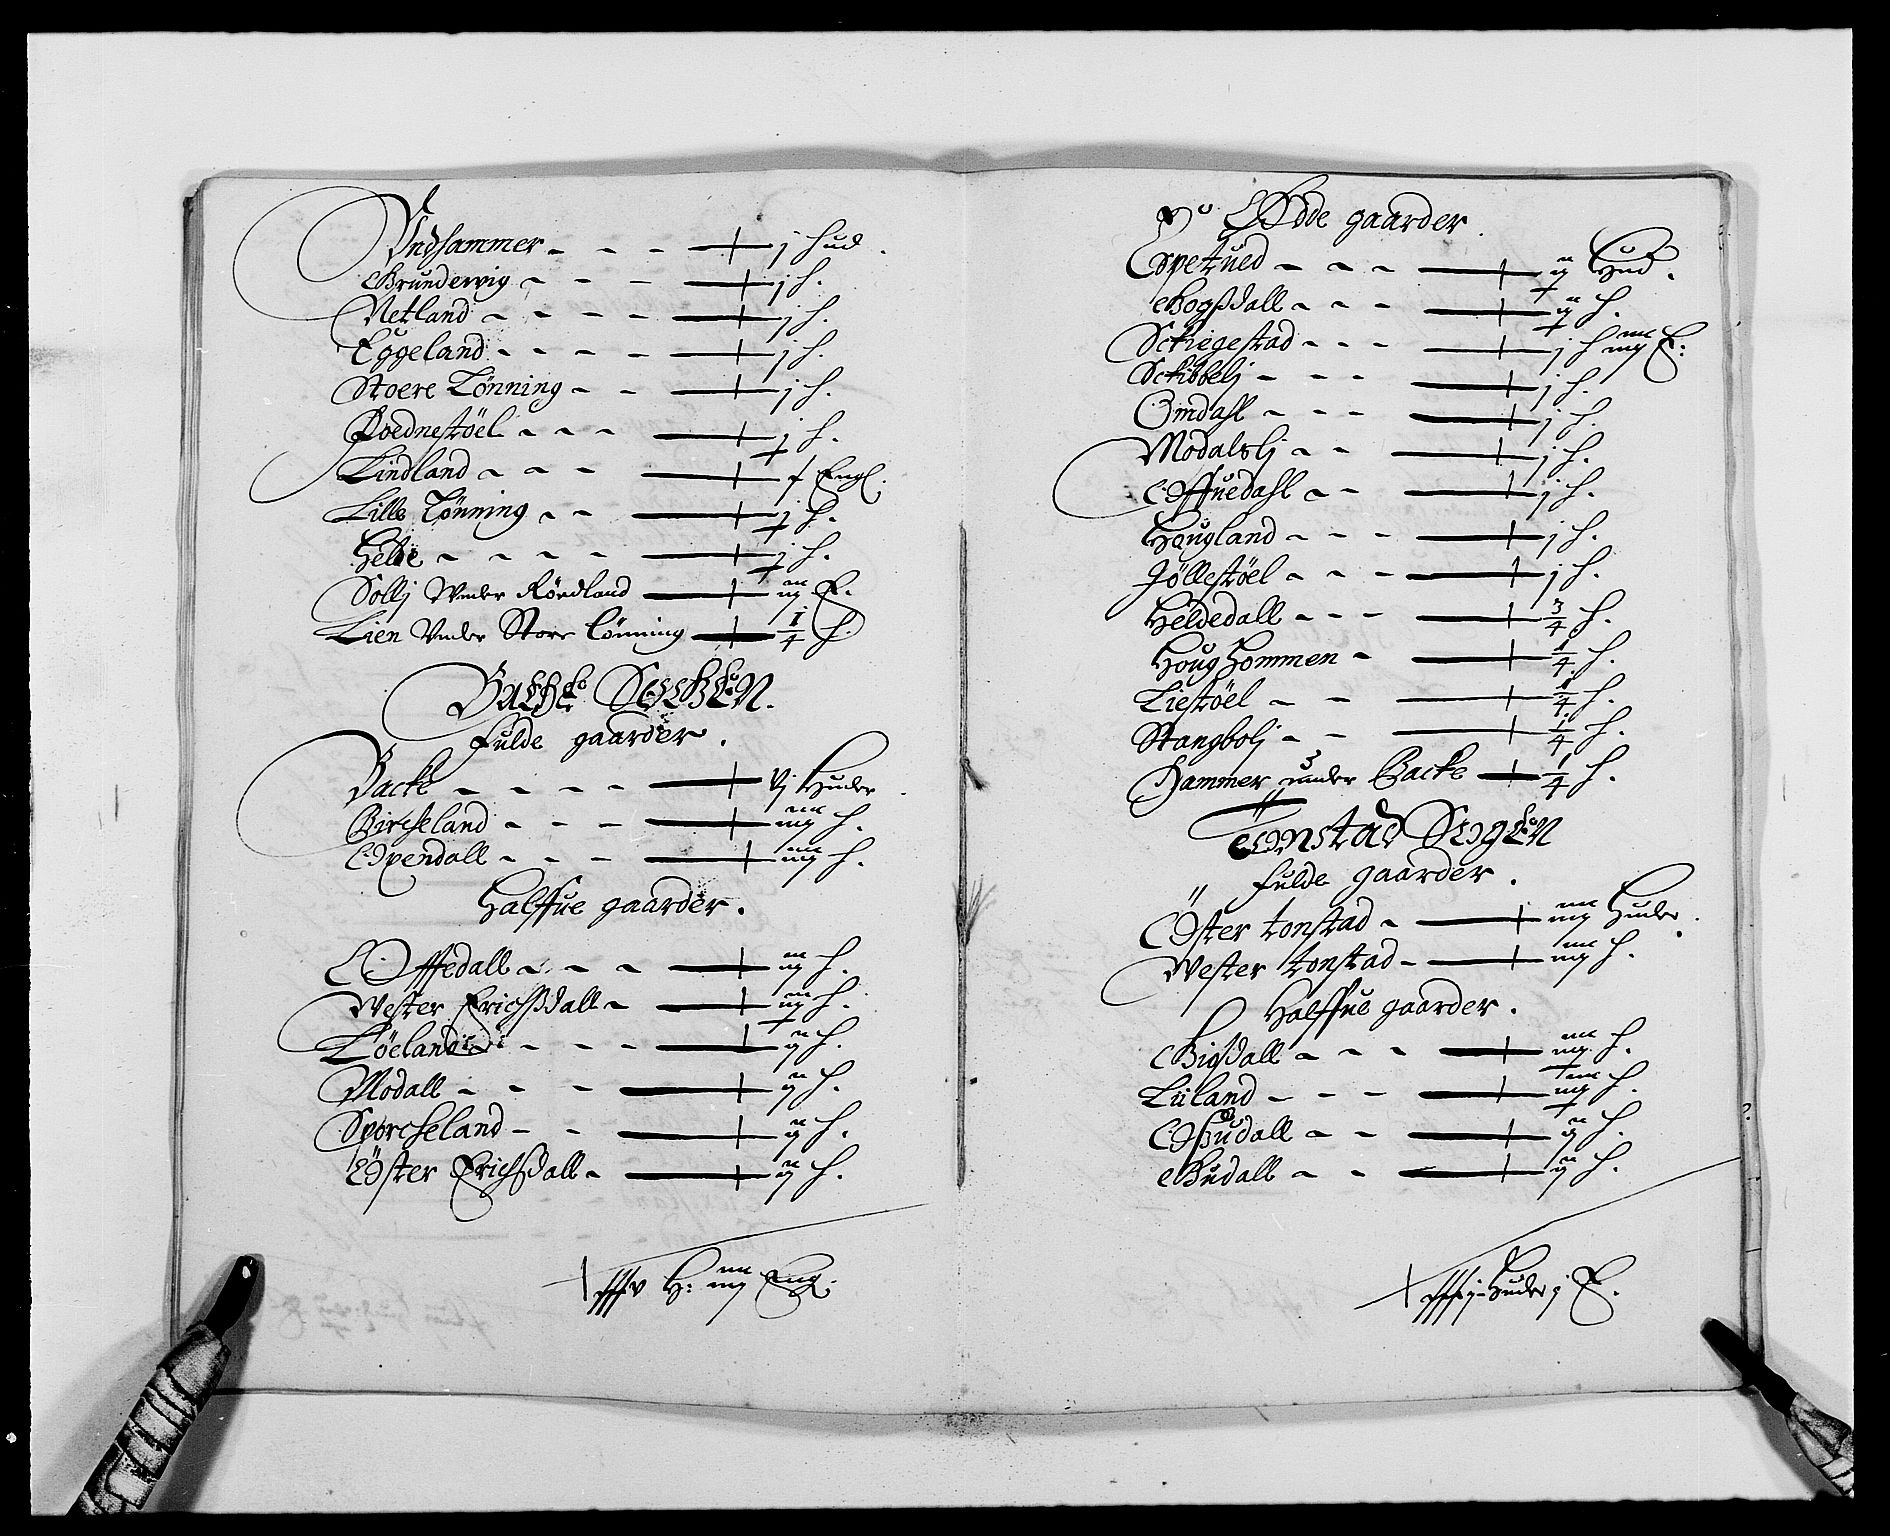 Vndhammer - - - - j hud.
Grundevig - - - - j h.
Netland - - - - - j h.
Eggeland - - - - j h.
Stoere Tønning - - j h.
Roednestöel - - - j h.
Lindland - - - j Engl.
Lille Tønning - - j h.
Helle - - - - j h.
Sollj Vnder Rørdland iij E.
Lien Vnder Store Tønning 1/4 h.
Backe Sougen.
Fulde gaarder.
Backe - - - - vj Huder
Bircheland - - - iiij h.
Opendall - - - iiij h.
Halffue gaarder.
Offedall - - - iij h.
Wester Erichsdall - iij h.
Löeland - - - ij h.
Modall - - - ij h.
Sporcheland - - ij h.
Öster Erichsdall - ij h.
H: iiij Engl.
Øde gaarder.
Espetued - - - ij Hud.
Bogsdall - - - ij h.
Schiegestad - - - j h iiij E:
Schibbelj - - - j h.
Omdahl - - - j h.
Modalslj - - j h.
Offuedahl - - j h.
Hougland - - - j h.
Jöllestöel - - - j h.
Heldedall - - - 3/4 h.
Houghommen - 1/4 h.
Liestöel - - 1/4 h.
Stangbolj - - 1/4 h.
Hammer under Backe 1/4 h.
Tonstad Sogen
Fulde gaarder.
Öster tonstad - iiij Huder.
Wester tonstad - iiij h.
Halffue gaarder.
Bigdall - - - iiij h.
Liland - - - iiij h.
Osudall - - ij h.
Gudall - - ij h.
Huder j E.